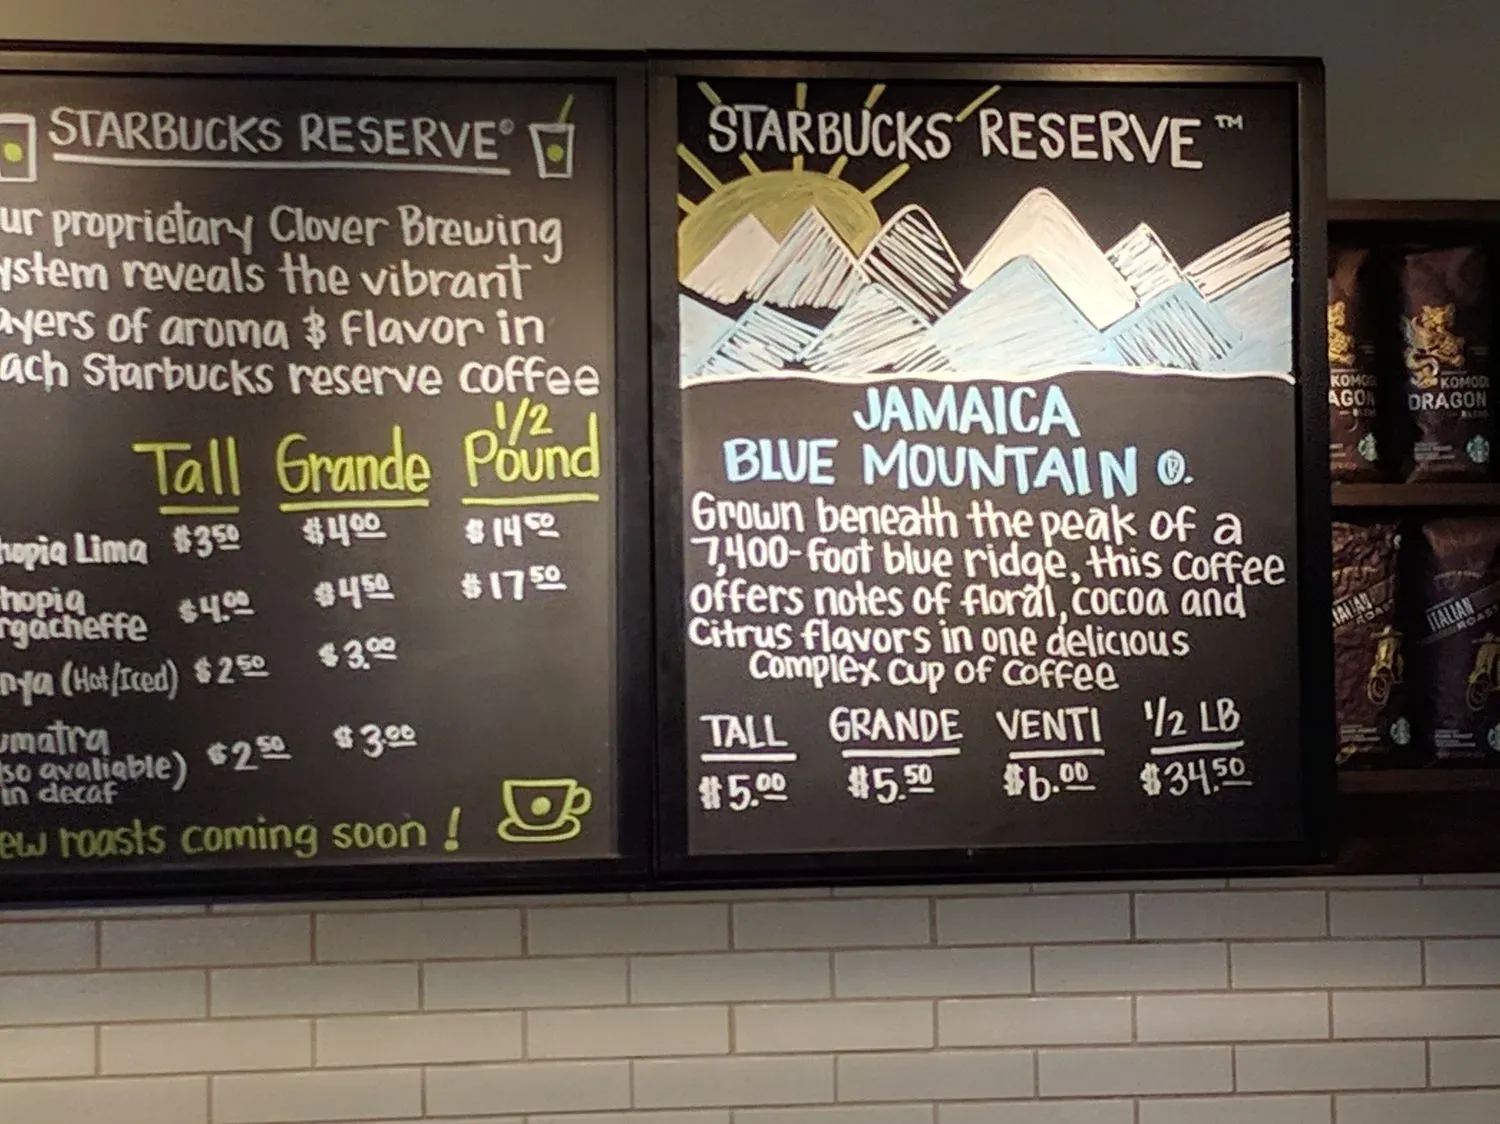 STARBUCKS RESERVE®
ur proprietary Clover Brewing
ystem reveals the vibrant
ayers of aroma & flavor in
ach Starbucks reserve coffee
Tall Grande 1/2 Pound
hopia Lima $3.50 $4.00 $14.50
hopia
rgacheffe $4.00 $4.50 $17.50
nya (Hot/Iced) $2.50 $3.00
umatra
so avaliable)
in decaf $2.50 $3.00
ew roasts coming soon!
STARBUCKS RESERVE™
JAMAICA
BLUE MOUNTAIN ®.
Grown beneath the peak of a
7,400-foot blue ridge, this coffee
offers notes of floral, cocoa and
Citrus flavors in one delicious
Complex cup of coffee
TALL GRANDE VENTI 1/2 LB
$5.00 $5.50 $6.00 $34.50
KOMOD
AGON
BLEND
KOMODO
DRAGON
BLEND
ITALIAN
ROAST
ITALIAN
ROAST